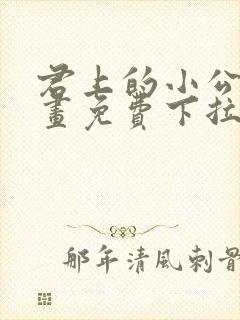 君上的小公
画免费下拉
那年清風刺骨